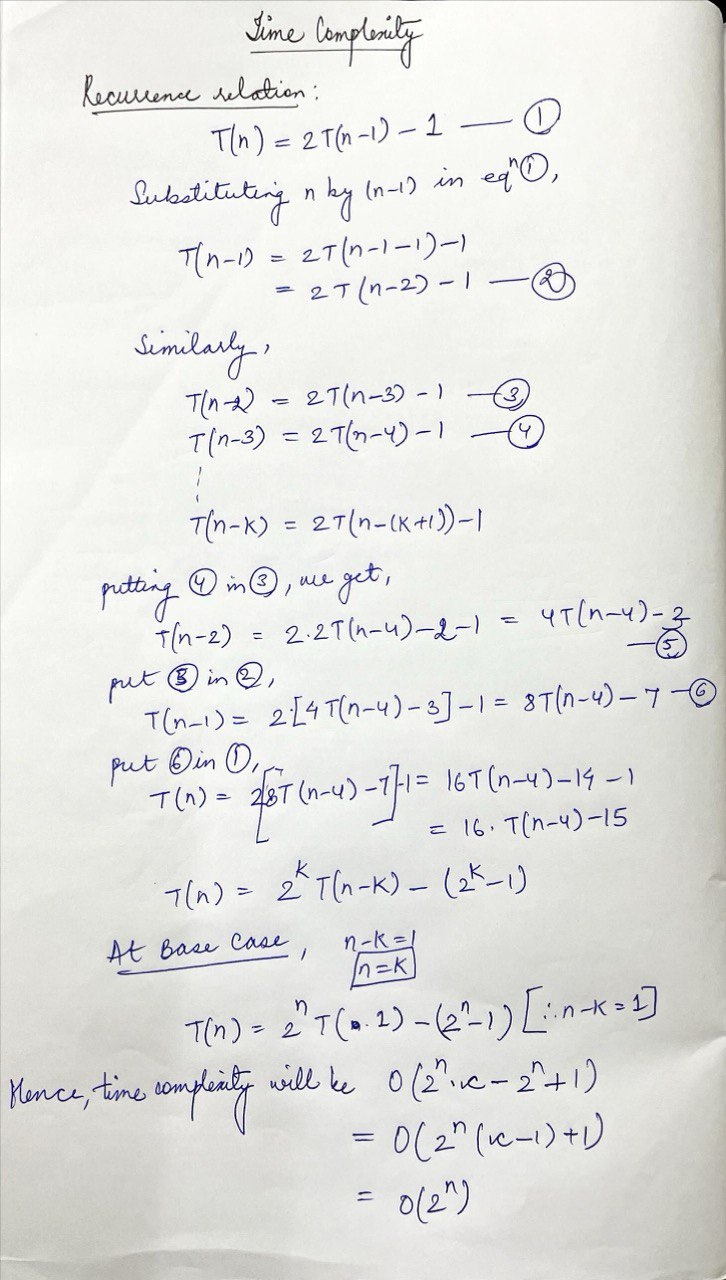 Time Complexity
Recurrence relation:
T(n) = 2T(n-1) - 1 — ①
Substituting n by (n-1) in eqⁿ①,
T(n-1) = 2T(n-1-1)-1
= 2T(n-2) - 1 — ②
Similarly,
T(n-2) = 2T(n-3) - 1 — ③
T(n-3) = 2T(n-4) - 1 — ④
T(n-K) = 2T(n-(K+1))-1
putting ④ in ③, we get,
T(n-2) = 2.2T(n-4)-2-1 = 4T(n-4)-3
— ⑤
put ⑤ in ②,
T(n-1) = 2.[4T(n-4)-3]-1 = 8T(n-4)-7 — ⑥
put ⑥ in ①,
T(n) = 2[8T(n-4)-7]-1 = 16T(n-4)-14-1
= 16. T(n-4)-15
T(n) = 2ᴷ T(n-K) - (2ᴷ-1)
At Base Case, n-K=1
n=K
T(n) = 2ⁿ T(1) - (2ⁿ-1) [∴n-K=1]
Hence, time complexity will be O(2ⁿ.c - 2ⁿ+1)
= O(2ⁿ(c-1)+1)
= O(2ⁿ)